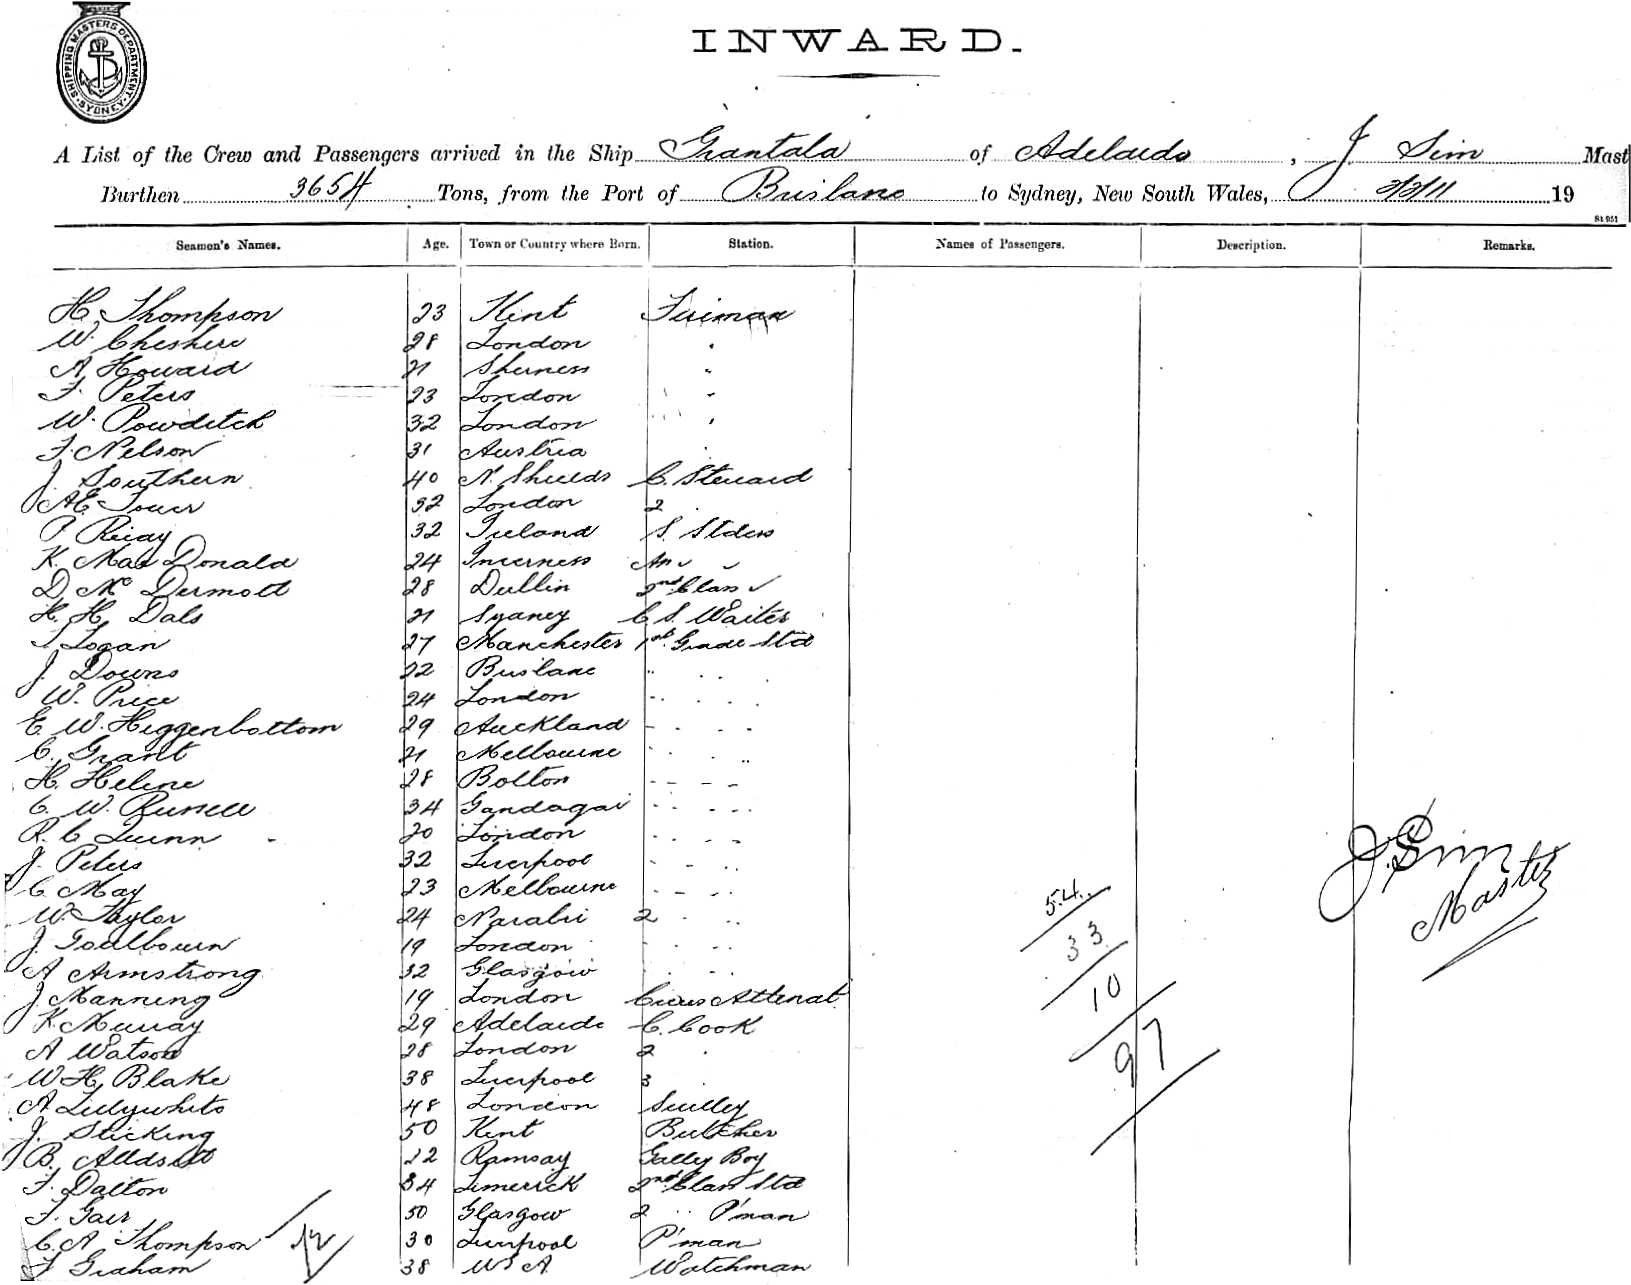 SHIPPING MASTERS DEPARTMENT · SYDNEY ·
INWARD.
A List of the Crew and Passengers arrived in the Ship Grantala of Adelaide, J Sim Mast
Burthen 3654 Tons, from the Port of Brisbane to Sydney, New South Wales, 3/3/11 19
St 951
Seamen's Names. Age. Town or Country where Born. Station. Names of Passengers. Description. Remarks.
H. Thompson 23 Kent Fireman
W. Cheshire 28 London "
A Howard 21 Sherness "
F. Peters 23 London "
W. Powditch 32 London "
F. Nelson 31 Austria
J. Southern 40 N. Shields C. Steward
A E Tower 32 London 2
P 32 Ireland S. Stdess
K. MacDonald 24 Inverness
D. McDermott 28 Dublin 2nd Class
H. H. Dals 21 Sydney C S. Waiter
Logan 27 Manchester 1st Grade Std
J. Downs 22 Brisbane " " "
W. Price 24 London " " "
E. W. Higgenbottom 29 Auckland " " "
C. Grant 21 Melbourne " " "
H. Helene 28 Bolton " " "
C. W. Russell 34 Gundagai " " "
R. C Quinn 20 London " " "
J. Peters 32 Liverpool " " "
C. May 23 Melbourne " " "
W. Taylor 24 Narabri 2 " "
J. Goulbourn 19 London " " "
A Armstrong 32 Glasgow " " "
J. Manning 19 London Attenat
K. Murray 29 Adelaide C. Cook
A Watson 28 London 2 "
W. H. Blake 38 Liverpool 3 "
A Lulywhite 48 London Sculley
J. Sticking 50 Kent Butcher
B. 22 Ramsay Galley Boy
F. Dalton 34 Limerick 2nd Class Std
F. Gair 50 Glasgow 2 " P'man
C. A Thompson 30 Liverpool P'man
F Graham 38 W. A. Watchman
54
33
10
97
J. Sim
Master